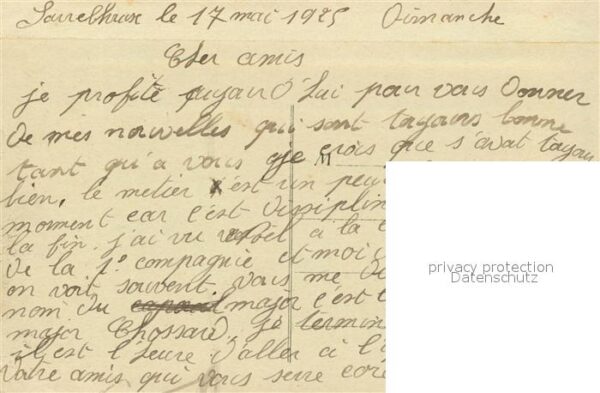 Sarrebruxe le 17 mai 1925 Dimanche
Cher amis
je profite aujourd'hui pour vous donner
de mes nouvelles qui sont toyours bonne
tant qu'a vous je crois que s'avat toyour
bien, le metier c'est un peu
moment car c'est disiplin
la fin. j'ai vu à la
de la 1e compagnie et moi
on voit souvent. vous me de
nom du major c'est l
major Chossard. je termin
il est l'heure d'aller à l'
votre amis qui vous serre
privacy protection
Datenschutz